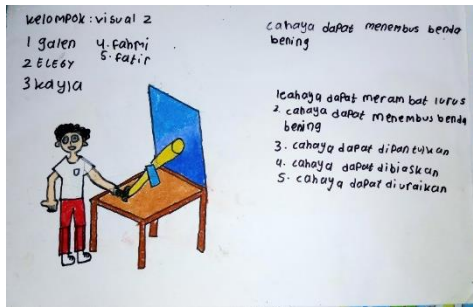 kelompok : visual 2
1 galen
2 ELEGY
3 kayla
4. fahmi
5. fatir
cahaya dapat menembus benda
bening
1 cahaya dapat merambat lurus
2. cahaya dapat menembus benda
bening
3. cahaya dapat dipantulkan
4. cahaya dapat dibiaskan
5. cahaya dapat diuraikan